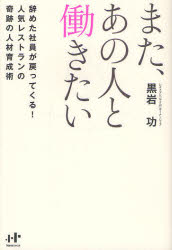 また、
あの人と
働きたい
黒岩 功
辞めた社員が戻ってくる！
人気レストランの
奇跡の人材育成術